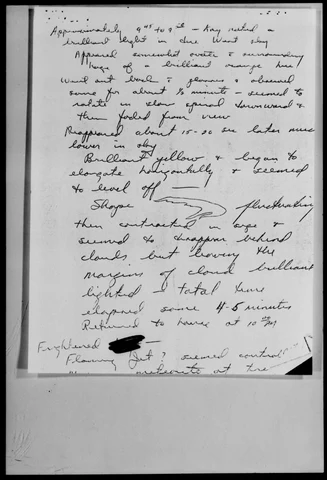 Approximately 9 to 9 - Kay noted a
brilliant light in due West sky
Appeared somewhat ovate & surrounding
haze of a brilliant orange hue
Went out back & glasses & observed
same for about ½ minute - seemed to
rotate in slow spiral downward &
then faded from view
Reappeared about 15-20 sec later much
lower in sky
Brilliant yellow & began to
elongate horizontally & seemed
to level off
Shape fluctuating
then contracted in size &
seemed to disappear behind
clouds but leaving the
margins of cloud brilliant
lighted - total time
elapsed some 4-5 minutes
Returned to house at 10 PM
Frightened
Flaming Jet? seemed control
meteorite at the